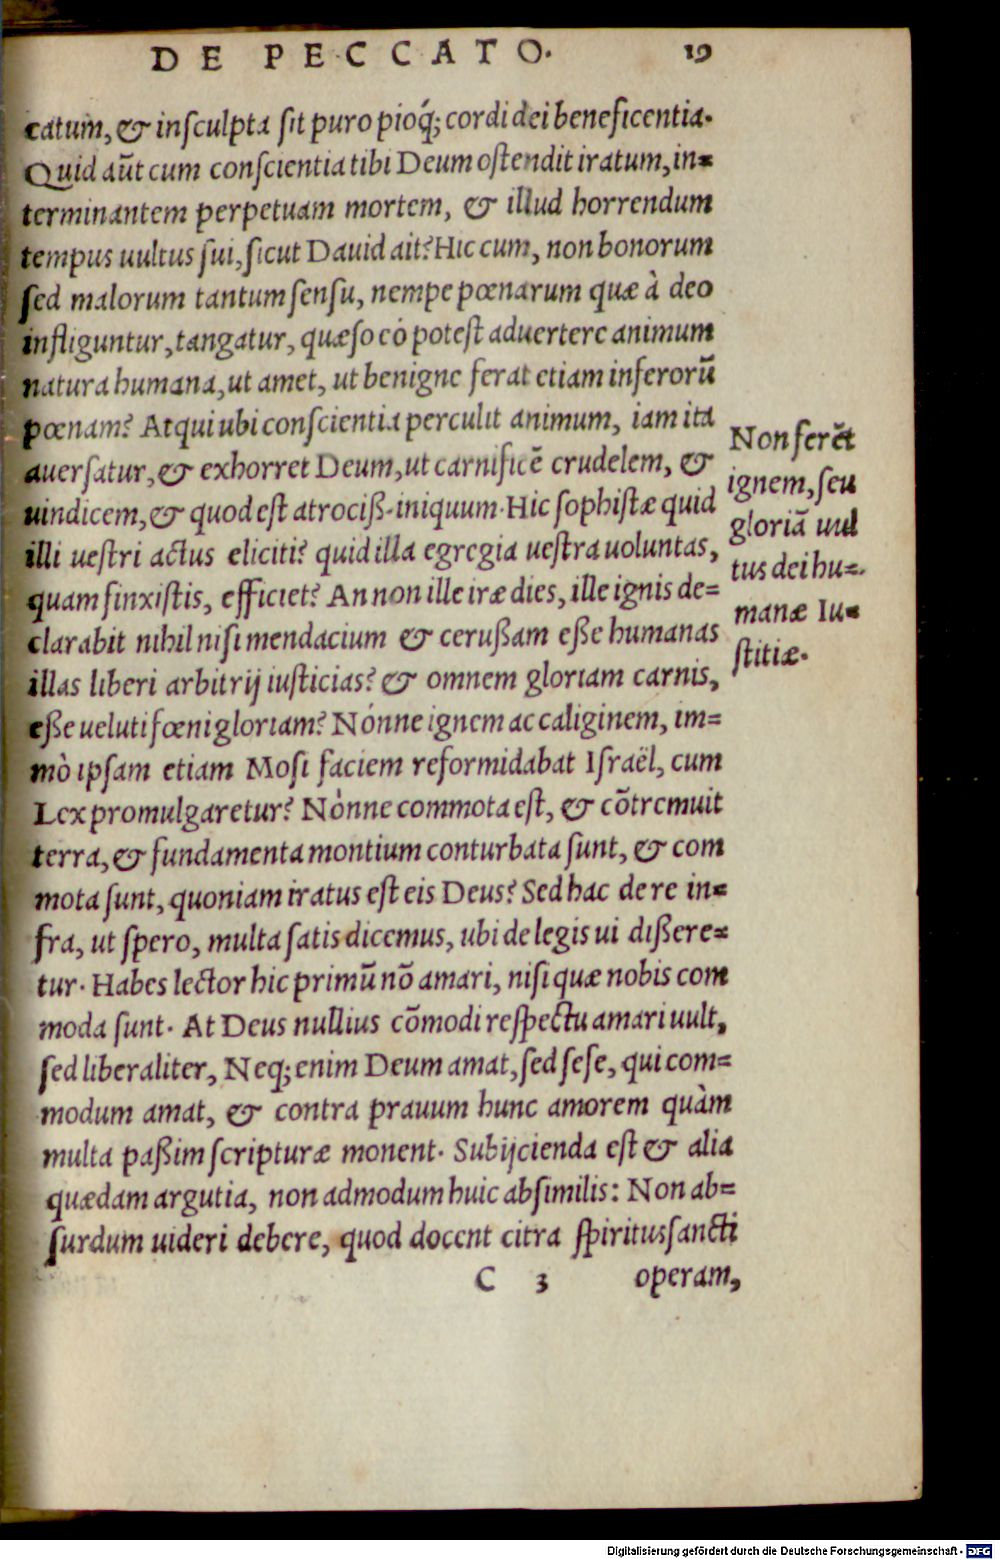 DE PECCATO. 19
catum, & insculpta sit puro pioq́; cordi dei beneficentia.
Quid aũt cum conscientia tibi Deum ostendit iratum, in=
terminantem perpetuam mortem, & illud horrendum
tempus uultus sui, sicut Dauid ait? Hic cum, non bonorum
sed malorum tantum sensu, nempe pœnarum quæ à deo
infliguntur, tangatur, quæso cõ potest aduertere animum
natura humana, ut amet, ut benigne ferat etiam inferorũ
pœnam? Atqui ubi conscientia perculit animum, iam ita
auersatur, & exhorret Deum, ut carnificẽ crudelem, &
uindicem, & quod est atrociß. iniquum. Hic sophistæ quid
illi uestri actus eliciti? quid illa egregia uestra uoluntas,
quam finxistis, efficiet? An non ille iræ dies, ille ignis de=
clarabit nihil nisi mendacium & cerußam eße humanas
illas liberi arbitrij iusticias? & omnem gloriam carnis,
eße ueluti fœni gloriam? Nónne ignem ac caliginem, im=
mò ipsam etiam Mosi faciem reformidabat Israël, cum
Lex promulgaretur? Nònne commota est, & cõtremuit
terra, & fundamenta montium conturbata sunt, & com
mota sunt, quoniam iratus est eis Deus? Sed hac de re in=
fra, ut spero, multa satis dicemus, ubi de legis ui dißere=
tur. Habes lector hic primũ nõ amari, nisi quæ nobis com
moda sunt. At Deus nullius cõmodi respectu amari uult,
sed liberaliter, Neq; enim Deum amat, sed sese, qui com=
modum amat, & contra prauum hunc amorem quàm
multa paßim scripturæ monent. Subijcienda est & alia
quædam argutia, non admodum huic absimilis: Non ab=
surdum uideri debere, quod docent citra spiritussancti
C 3 operam,
Non ferẽt
ignem, seu
gloriã uul
tus dei hu=
manæ Iu=
stitiæ.
Digitalisierung gefördert durch die Deutsche Forschungsgemeinschaft - DFG